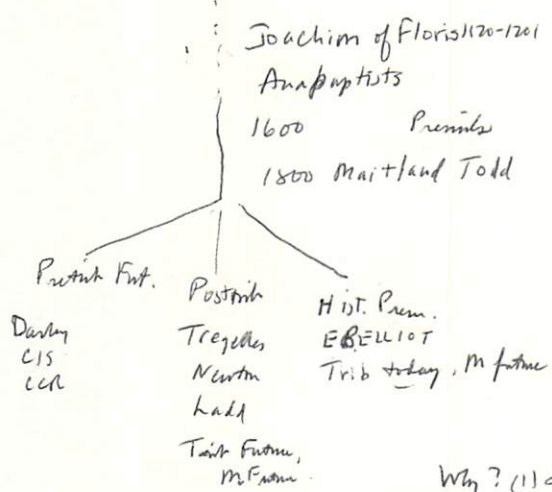 Joachim of Floris 1120-1201
Anabaptists
1600 Premils
1800 Maitland Todd
Pretrib Fut.
Darby
CIS
CCR
Posttrib
Tregelles
Newton
Ladd
Trib Future,
M Future.
Hist. Prem.
EBELLIOT
Trib today, M future
Why? (1)